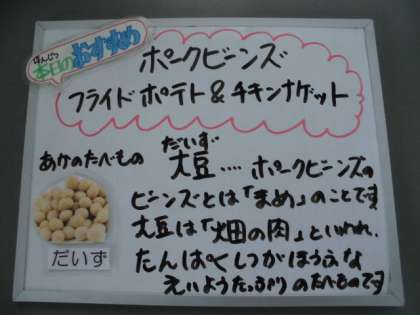 ほんじつ
本日のおすすめ
ポークビーンズ
フライドポテト＆チキンナゲット
あかのたべもの 大豆‥‥ ポークビーンズの
だいず
ビーンズとは「まめ」のことです
大豆は「畑の肉」といわれ、
たんぱくしつがほうふな
えいようたっぷりのたべものです
だいず